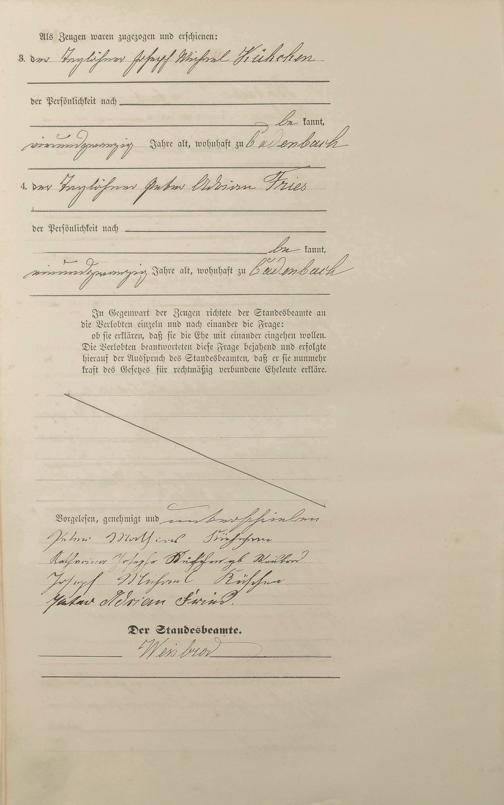 Als Zeugen waren zugezogen und erschienen:
3. der Taglöhner Joseph Michael Kühchen
der Persönlichkeit nach
be kannt,
vierundzwanzig Jahre alt, wohnhaft zu Cadenbach
4. der Taglöhner Peter Adrian Fries
der Persönlichkeit nach
be kannt,
einundzwanzig Jahre alt, wohnhaft zu Cadenbach
In Gegenwart der Zeugen richtete der Standesbeamte an
die Verlobten einzeln und nach einander die Frage:
ob sie erklären, daß sie die Ehe mit einander eingehen wollen.
Die Verlobten beantworteten diese Frage bejahend und erfolgte
hierauf der Ausspruch des Standesbeamten, daß er sie nunmehr
kraft des Gesetzes für rechtmäßig verbundene Eheleute erkläre.
Vorgelesen, genehmigt und unterschrieben
Peter Mathias
Katharina Josepha
Joseph Michael Kühchen
Peter Adrian Fries.
Der Standesbeamte.
Weisbrod